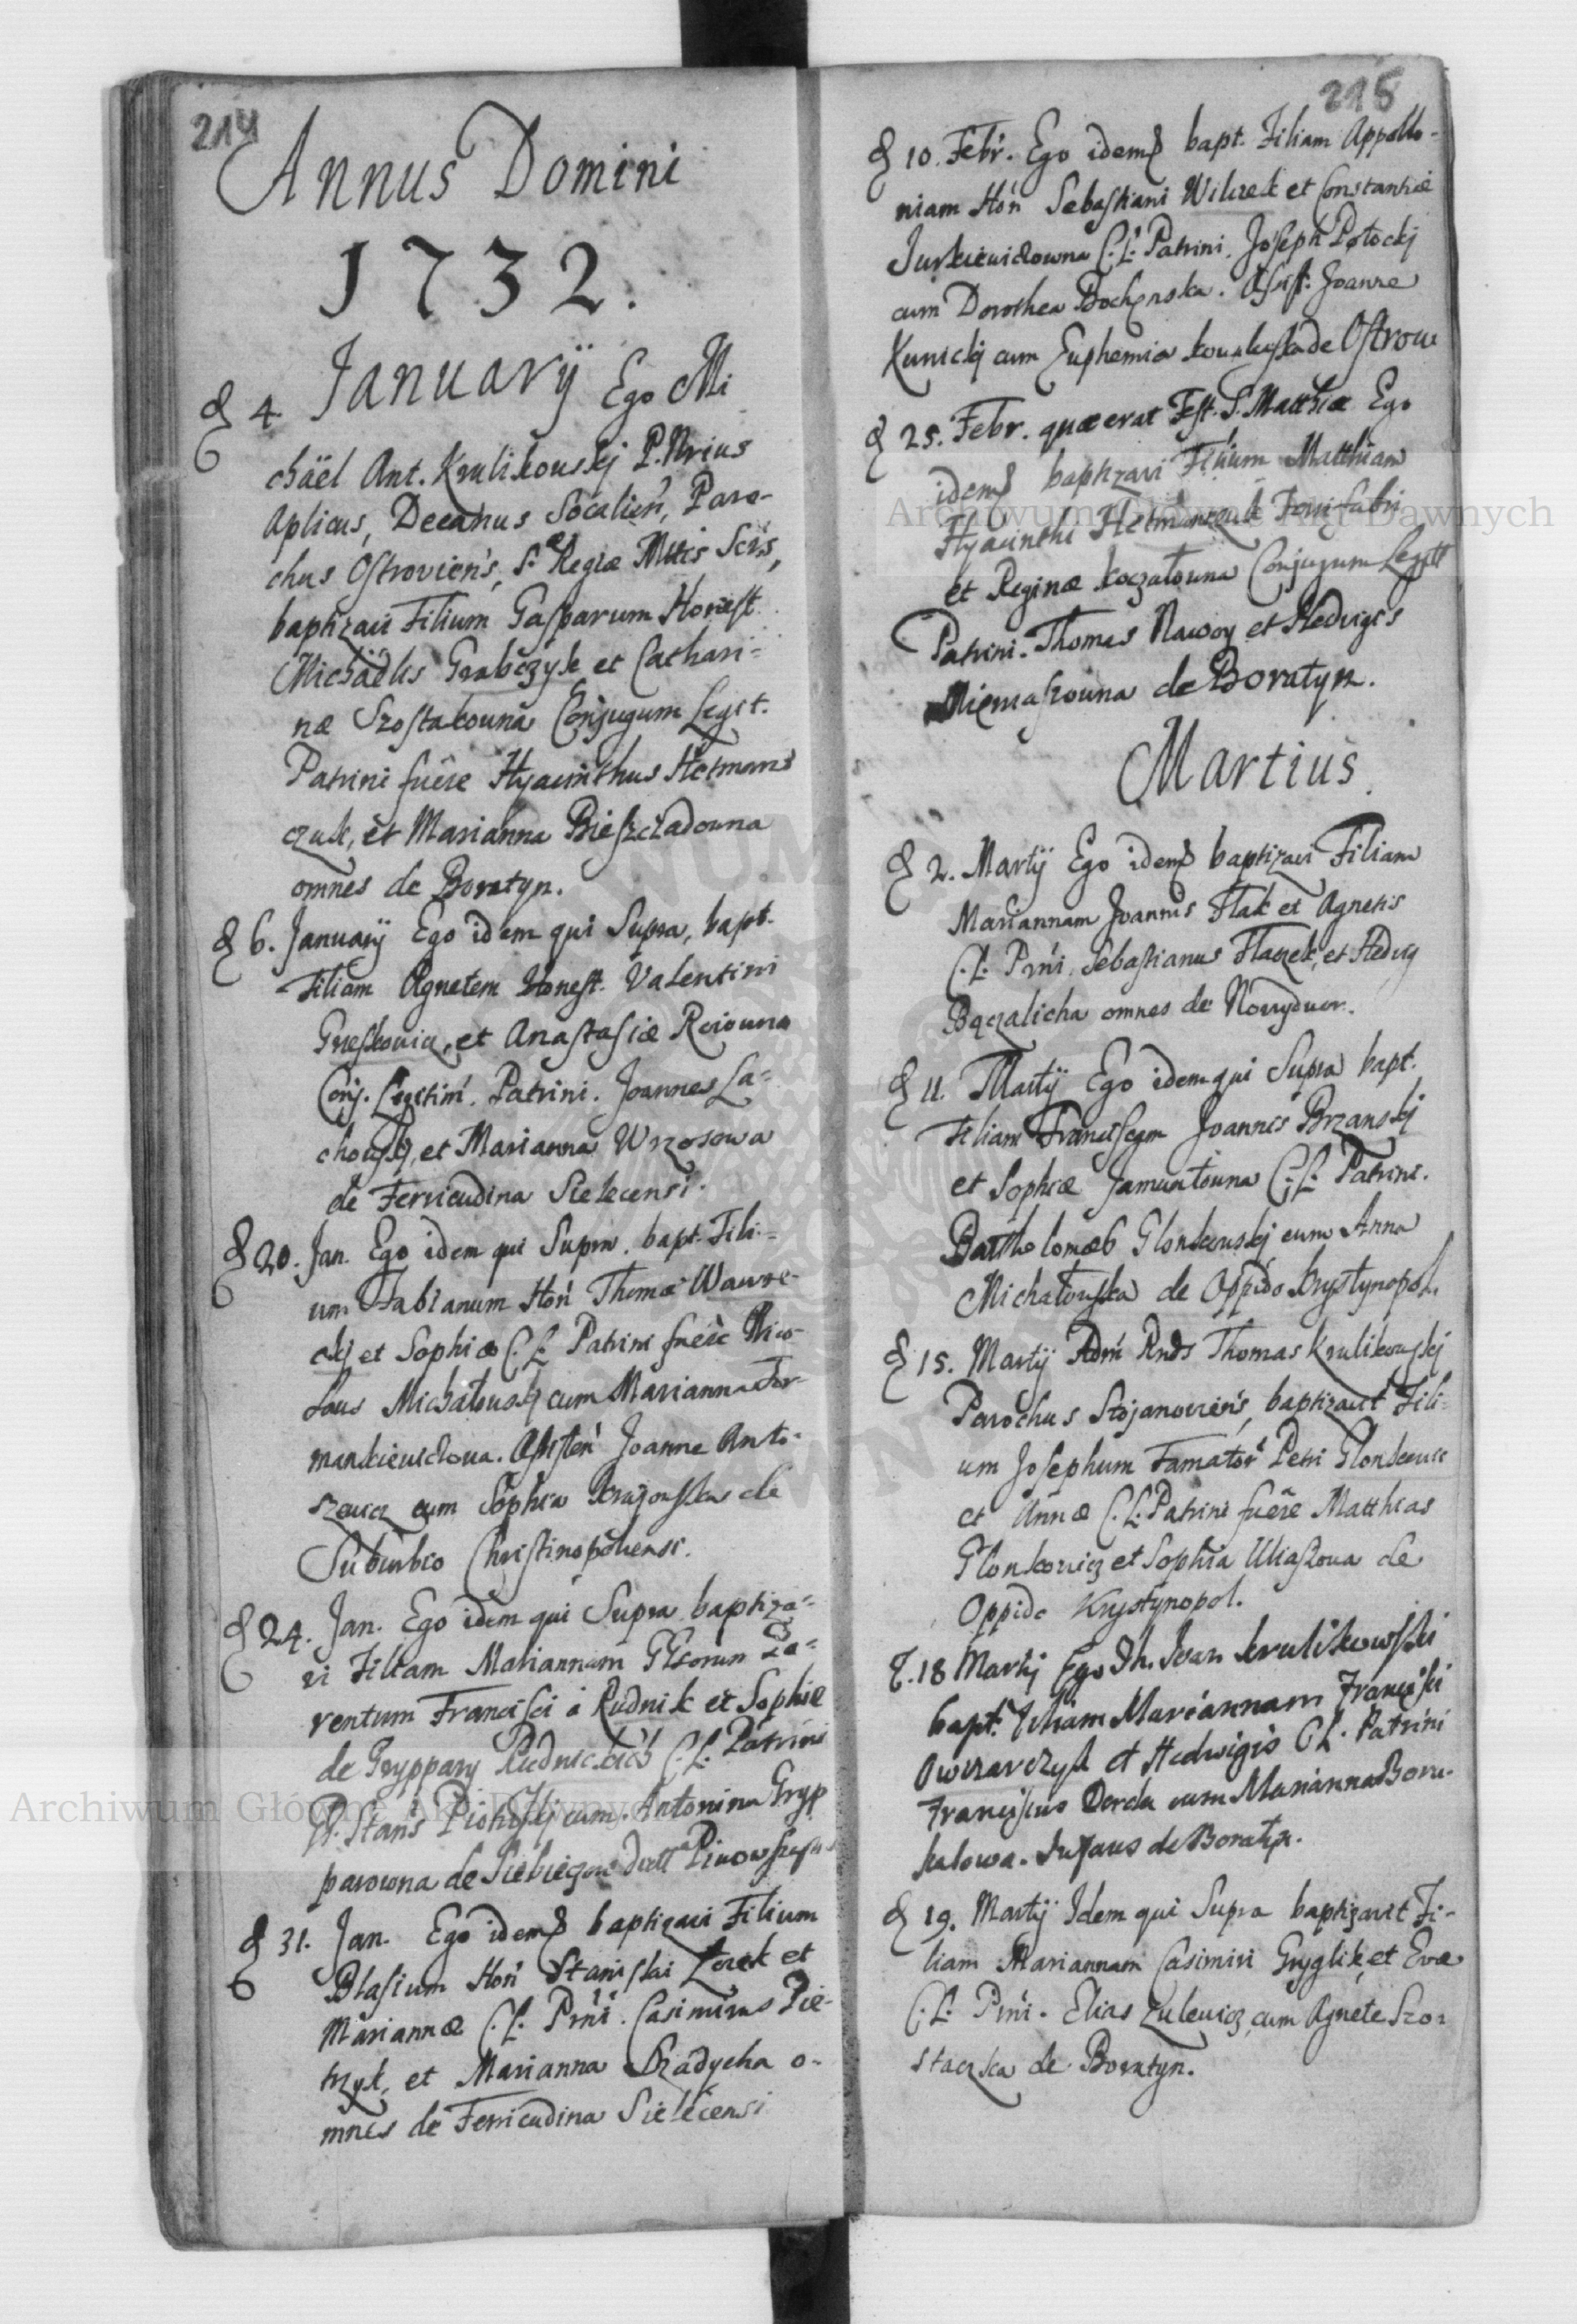 214
Annus Domini
1732.
d 4. Januarÿ Ego Mi
chäel Ant. Krulikouskj P. Nrius
Aplicus, Decanus Socalien, Paro-
chus Ostroviens, S. Regiæ Mttis Scris,
baptizavi Filium Gasparum Honest.
Michäelis Grabczyk et Cathari-
næ Szostakouna Conjugum Legit.
Patrini fuêre Hyacinthus Hetmans
czuk, et Marianna Bieszczadouna
omnes de Boratyn.
d 6. Januarÿ Ego idem qui Supra, bapt.
Filiam Agnetem Honest. Valentini
et Anastasiæ
Conj. Legitim. Patrini. Joannes La-
chouskj, et Marianna Wrzosowa
de Ferricudina Sielecensi.
d 20. Jan. Ego idem qui Supra. bapt. Fili-
um Fabianum Hon Thomæ Wawre-
ckj et Sophiæ C. L. Patrini fuêre Nico-
laus Michałouskj cum Marianna For-
mankieuiczoua. Assisten Joanne Anto-
szeuicz cum Sophia de
Suburbio Christinopoliensi.
d 24. Jan. Ego idem qui Supra baptiza-
vi Filiam Mariannam Gsorum Pa-
rentum Francisci à Rudnik et Sophiæ
de Gryppary Rudnickich C. L. Patrini
G. Stans cum Antonina Gryp
parowna de
d 31. Jan. Ego idemq baptizavi Filium
Blasium Hon Stanislai Zorek et
Mariannæ C. L. Prni. Casimirus Pie-
trzyk, et Marianna Szadycha o-
mnes de Ferricudina Sielecensi
215
d 10. Febr. Ego idemq bapt. Filiam Appollo-
niam Hon Sebastiani Wilczek et Constantiæ
Jurkieuiczowna C. L. Patrini. Joseph Potockj
cum Dorothea Bochenska. Assist. Joanne
Kunickj cum Euphemia de Ostrow
d 25. Febr. quæ erat Fest. S. Matthiæ Ego
idemq baptizavi Filium Matthiam
Hyacinthi Hetmanczuk
et Reginæ Koczałouna Conjugum Legitt
Patrini. Thomas Nawoy et Hedvigis
Niemaszouna de Boratyn.
Martius.
d 2. Martÿ Ego idemq baptizavi Filiam
Mariannam Joannis Flak et Agnetis
C. L. Prni. Sebastianus Flaczek, et Hedvig
Bączalicha omnes de Nowydwor.
d 11. Martÿ Ego idem qui Supra bapt.
Filiam Franciscam Joannis Brzanskj
et Sophiæ Jamuntouna C. L. Patrini.
Bartholomæo Glonkouskj cum Anna
Michałouska de Oppido Krystynopol.
d 15. Martÿ Adm Rnds Thomas Krulikouskj
Parochus Stojanoviens, baptizavit Fili-
um Josephum Famator Petri Glonkouic
et Annæ C. L. Patrini fuêre Matthias
Glonkowicz et Sophia Uliaszoua de
Oppido Krystynopol.
d. 18 Martij Ego Th. Ivan Krulikowski
bapt. Filiam Mariannam Francisci
Owczarczyk et Hedwigis C L. Patrini
Franciscus Dorda cum Marianna Boru-
kalowa. de Boratyn.
d 19. Martÿ Idem qui Supra baptizavit Fi-
liam Mariannam Casimiri Gryglik, et Evæ
C. L. Prni. Elias Zulewicz, cum Agnete Szo-
staczka de Boratyn.
Archiwum Główne Akt Dawnych
Archiwum Główne Akt Dawnych